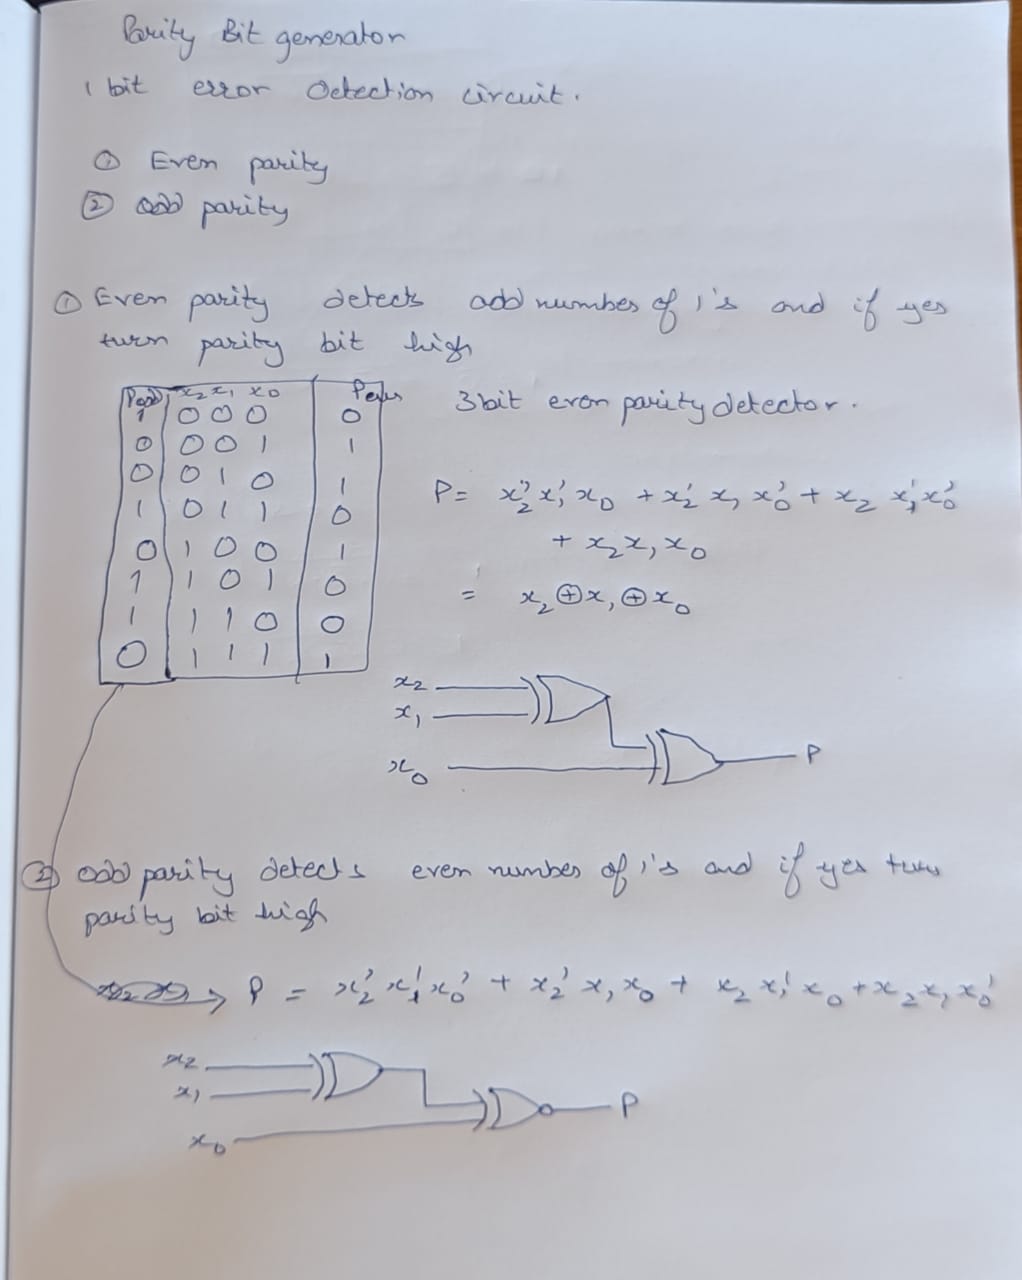 Parity Bit generator
1 bit error detection circuit.
① Even parity
② odd parity
① Even parity detects odd number of 1's and if yes
turn parity bit high
Podd x₂ x₁ x₀ Peven
1 0 0 0 0
0 0 0 1 1
0 0 1 0 1
1 0 1 1 0
0 1 0 0 1
1 1 0 1 0
1 1 1 0 0
0 1 1 1 1
3 bit even parity detector.
P = x₂' x₁' x₀ + x₂' x₁ x₀' + x₂ x₁' x₀'
+ x₂ x₁ x₀
= x₂ ⊕ x₁ ⊕ x₀
x₂
x₁
x₀
P
② odd parity detects even number of 1's and if yes turn
parity bit high
→ P = x₂' x₁' x₀' + x₂' x₁ x₀ + x₂ x₁' x₀ + x₂ x₁ x₀'
x₂
x₁
x₀
P